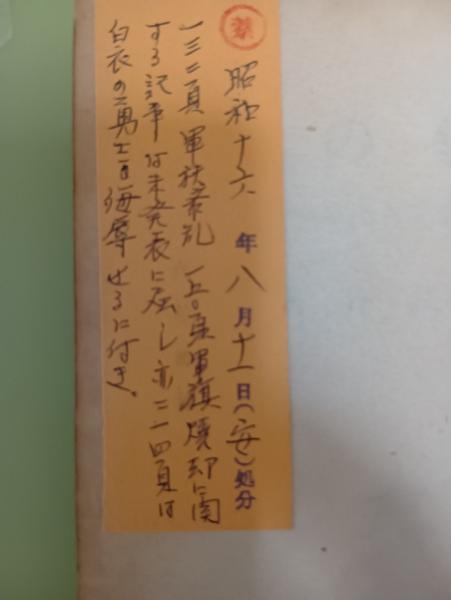 禁
昭和十六年八月十一日(安)処分
一三二頁 軍状紊乱 一五〇頁軍旗焼却ニ関
する記事は未発表に属し亦二一四頁は
白衣の勇士を侮辱せるに付き。